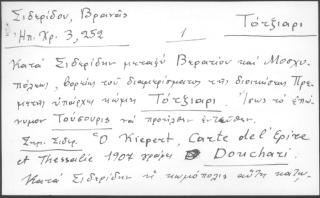 Σιδερίδου, Βρανᾶς
Τότζιαρι
Ηπ. Χρ. 3, 252
1
Κατὰ Σιδερίδην μεταξὺ Βερατίου καὶ Μοσχο-
πόλεως, βορείως τοῦ διαμερίσματος τῆς διοικήσεως Πρε-
μετῆς ὑπάρχει κώμη Τότζιαρι. Ἴσως τὸ ἐπώ-
νυμον Τόσουρις νὰ προῆλθεν ἐντεῦθεν.
Σημ. Σιδερ. Ὁ Kiepert, Carte de l'Epire
et Thessalie 1907 γράφει Douchari.
Κατὰ Σιδερίδην ἡ κωμόπολις αὕτη κατῳ-